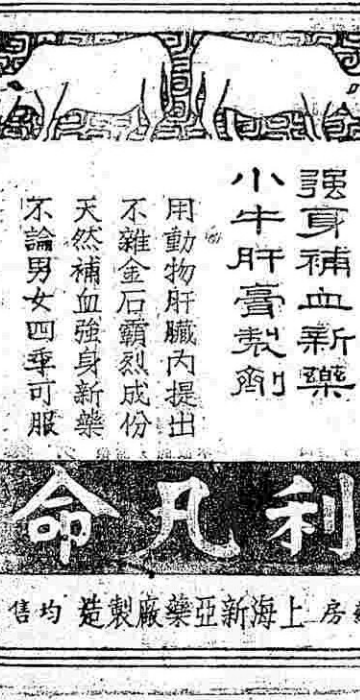 強身補血新藥
小牛肝膏製劑
用動物肝臟內提出
不雜金石霸烈成份
天然補血強身新藥
不論男女四季可服
利凡命
房均售
上海新亞藥廠製造